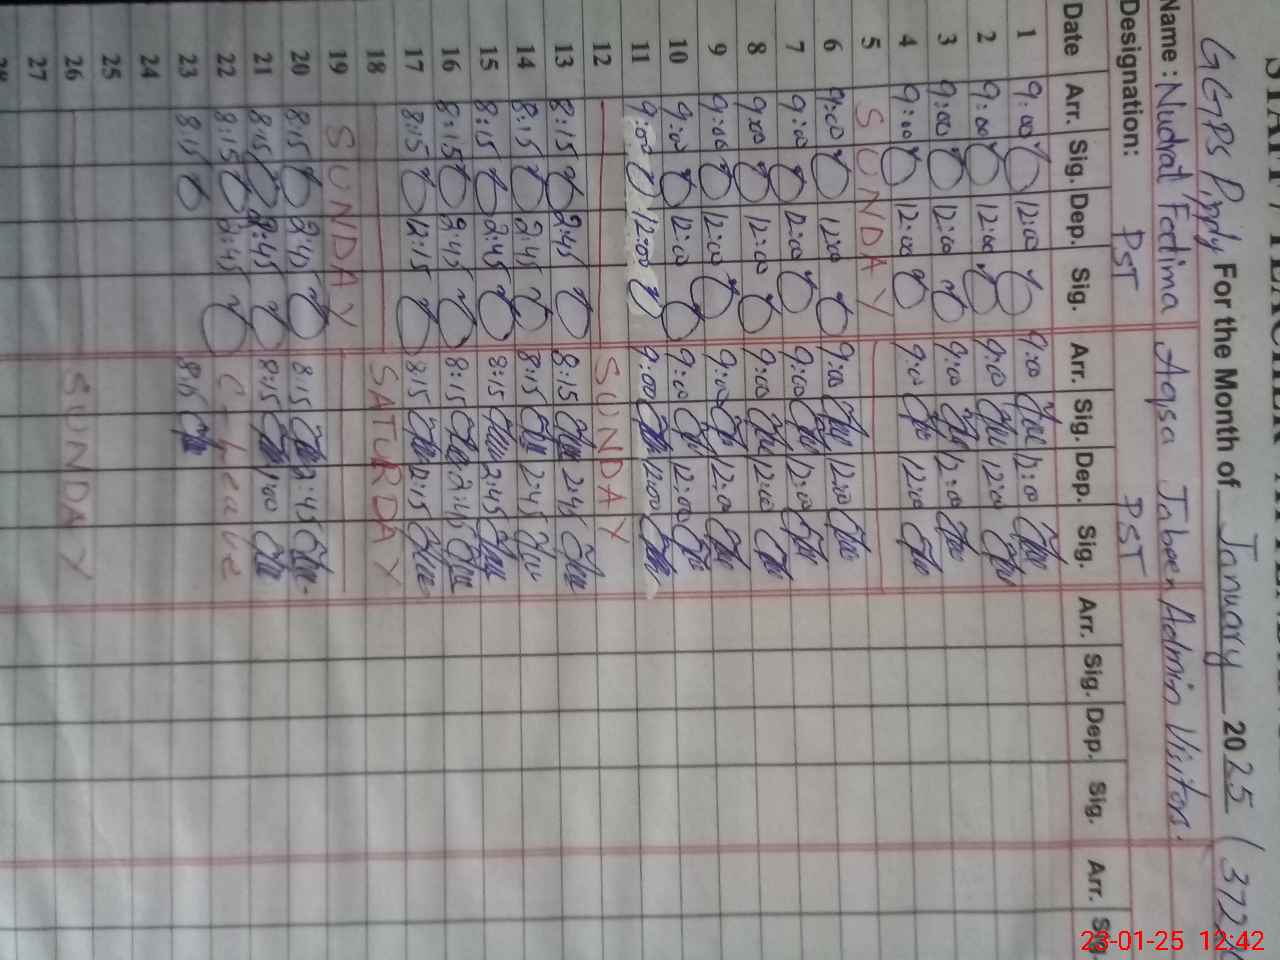 GGPS Pindy For the Month of January 2025 (372
Name : Nudrat Fatima Aqsa Jabeen Admin Visitors.
Designation: PST PST
Date Arr. Sig. Dep. Sig. Arr. Sig. Dep. Sig. Arr. Sig. Dep. Sig. Arr. Sig.
1 9:00 12:00 9:00 12:00
2 9:00 12:00 9:00 12:00
3 9:00 12:00 9:00 12:00
4 9:00 12:00 9:00 12:00
5 SUNDAY
6 9:00 12:00 9:00 12:00
7 9:00 12:00 9:00 12:00
8 9:00 12:00 9:00 12:00
9 9:00 12:00 9:00 12:00
10 9:00 12:00 9:00 12:00
11 9:00 12:00 9:00 12:00
12 SUNDAY
13 8:15 2:45 8:15 2:45
14 8:15 2:45 8:15 2:45
15 8:15 2:45 8:15 2:45
16 8:15 2:45 8:15 2:45
17 8:15 12:15 8:15 12:15
18 SATURDAY
19 SUNDAY
20 8:15 2:45 8:15 2:45
21 8:15 2:45 8:15 1:00
22 8:15 2:45 C-leave
23 8:15 8:15
24
25
26 SUNDAY
27
28
23-01-25 12:42